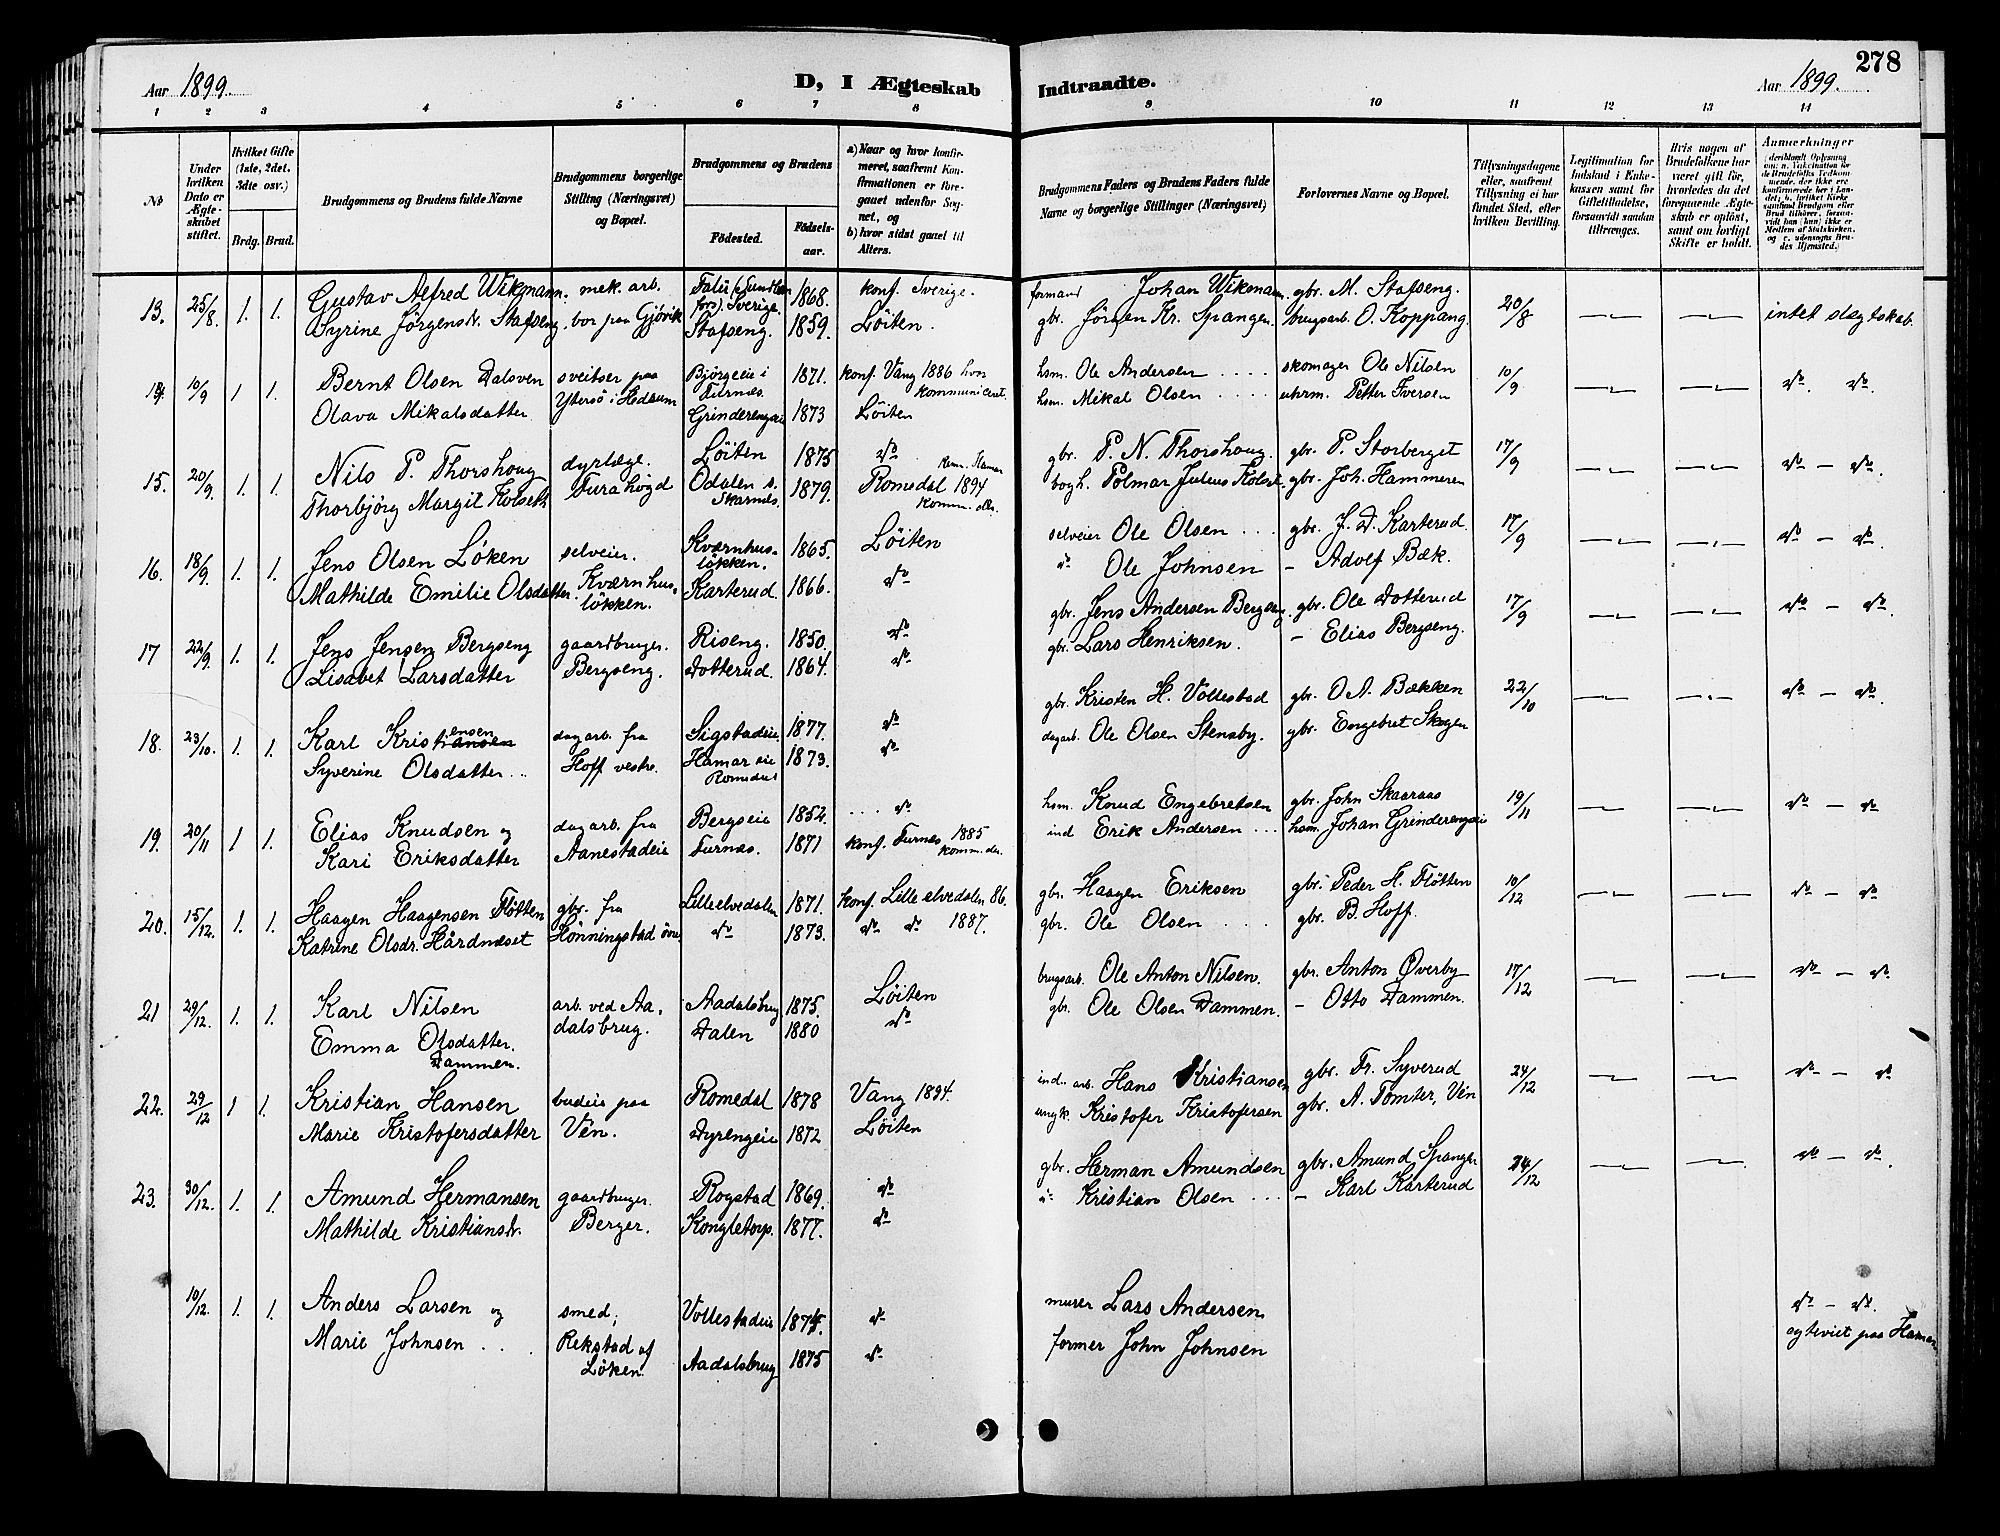 278
Aar 1899.
D, I Ægteskab Indtraadte.
Aar 1899.
1 2 3 4 5 6 7 8 9 10 11 12 13 14
№
Under hvilken Dato er Ægteskabet stiftet.
Hvilket Gifte (1ste, 2det. 3die osv.)
Brdg. Brud.
Brudgommens og Brudens fulde Navne
Brudgommens borgerlige Stilling (Næringsvei) og Bopæl.
Brudgommens og Brudens
Fødested.
Fødselsaar.
a) Naar og hvor konfirmeret, saafremt Konfirmationen er foregaaet udenfor Sognet, og
b) hvor sidst gaaet til Alters.
Brudgommens Faders og Brudens Faders fulde Navne og borgerlige Stillinger (Næringsvei)
Forlovernes Navne og Bopæl.
Tillysningsdagene eller, saafremt Tillysning ei har fundet Sted, efter hvilken Bevilling.
Legitimation for Indskud i Enkekassen samt for Giftetilladelse, forsaavidt saadan tiltrænges.
Hvis nogen af Brudefolkene har været gift før, hvorledes da det foregaaende Ægteskab er opløst, samt om lovligt Skifte er holdt.
Anmerkninger
13. 25/8. 1. 1. Gustav Alfred Wikmann. mek. arb. Falu (Sundborn 1868. konf. Sverige. formand Johan Wikmann. gbr. M. Stafseng. 20/8 intet slægtskab.
fors). Sverige.
Syrine Jörgensdr. Stafseng, bor paa Gjövik Stafseng. 1859. Löiten. gbr. Jörgen Kr. Spangen. brugsarb. O. Koppang.
14. 10/9 1 1. Bernt Olsen Dalsven sveitser paa Bjørgeeie i Furnes. 1871. konf. Vang 1886 hvor kommunicent. hsm. Ole Andersen .... skomager Ole Nilsen 10/9 do. do.
Olava Mikalsdatter Ytersö i Hedrum Grinderengeie 1873 Löiten hsm. Mikal Olsen .... uhrm. Petter Iversen
15. 20/9. 1. 1. Nils P. Thorshoug dyrlæge. Löiten 1875 do gbr. P. N. Thorshoug. gbr. P. Storberget 17/9 do – do.
Thorbjörg Margit Kolseth Furuhögd Odalen s. Skarnes. 1879. Romedal 1894 Komm. do. bogh. Polmar Julius Kolset. gbr. Joh. Hammeren
16. 18/9. 1. 1. Jens Olsen Löken selveier. Kværnhuslökken. 1865. Löiten selveier Ole Olsen ... gbr. J. D. Karterud. 17/9 do – do.
Mathilde Emilie Olsdatter. Kværnhuslökken. Karterud. 1866. do do. Ole Johnsen – Adolf Bæk.
17 22/9. 1. 1. Jens Jensen Bergseng gaardbruger. Riseng. 1850. do gbr. Jens Andersen Bergseng. gbr. Ole Dotterud 17/9 do – do.
Lisabet Larsdatter Bergseng. Dotterud. 1864. do gbr. Lars Henriksen. – Elias Bergseng.
18. 23/10. 1. 1. Karl Kristiansen ensen dagarb. fra Sigstadeie 1877. do gbr. Kristen H. Vollestad gbr. O A. Bækken 22/10 do – do
Syverine Olsdatter .. Hoff vestre. Hamar eie Romedal 1873. do dagarb. Ole Olsen Stensby. gbr. Engebret Skogen
19. 20/11 1 1. Elias Knudsen og dagarb. fra Bergseie 1852. ... do hsm. Knud Engebretsen gbr. John Skaaraas 19/11 do – do
Kari Eriksdatter Aanestadeie Furnæs. 1871 konf. Furnæs 1885 komm. do. ind Erik Andersen ... hsm. Johan Grinderengeie
20. 15/12. 1. 1. Haagen Haagensen Flötten gbr. fra Lilleelvedalen 1871. konf. Lille elvedalen 86. gbr. Haagen Eriksen gbr. Peder H. Flötten 10/12 do – do
Katrine Olsdr. Hårdnæset Hönningstad övre do 1873. do do 1887. gbr. Ole Olsen .... gbr. B. Hoff.
21 29/12. 1. 1. Karl Nilsen arb. ved Aadalsbrug. Aadalsbrug 1875. Löiten brugsarb. Ole Anton Nilsen. gbr. Anton Øverby 17/12 do – do.
Emma Olsdatter. Dammen. Dalen 1880 do gbr. Ole Olsen Dammen. – Otto Dammen.
22. 29/12 1 1. Kristian Hansen budeie paa Romedal 1878 Vang 1894. ind. arb. Hans Kristiansen gbr. Fr. Syverud 24/12 do – do
Marie Kristofersdatter Vén. Dyrengeie 1872 Löiten ungk. Kristofer Kristofersen gbr. A. Tomter, Vén
23. 30/12. 1. 1. Amund Hermansen gaardbruger. Rogstad 1869. do gbr. Herman Amundsen gbr. Amund Spangen 24/12 do – do.
Mathilde Kristiansdr. Berger. Kongletorp. 1877. do do Kristian Olsen ... – Karl Karterud
10/12. 1. 1. Anders Larsen og smed; Vollestadeie 1874. do murer Lars Andersen do – do.
Marie Johnsen ... Rekstad af Löken Aadalsbrug 1875 do former John Johnsen ægteviet paa Hamar